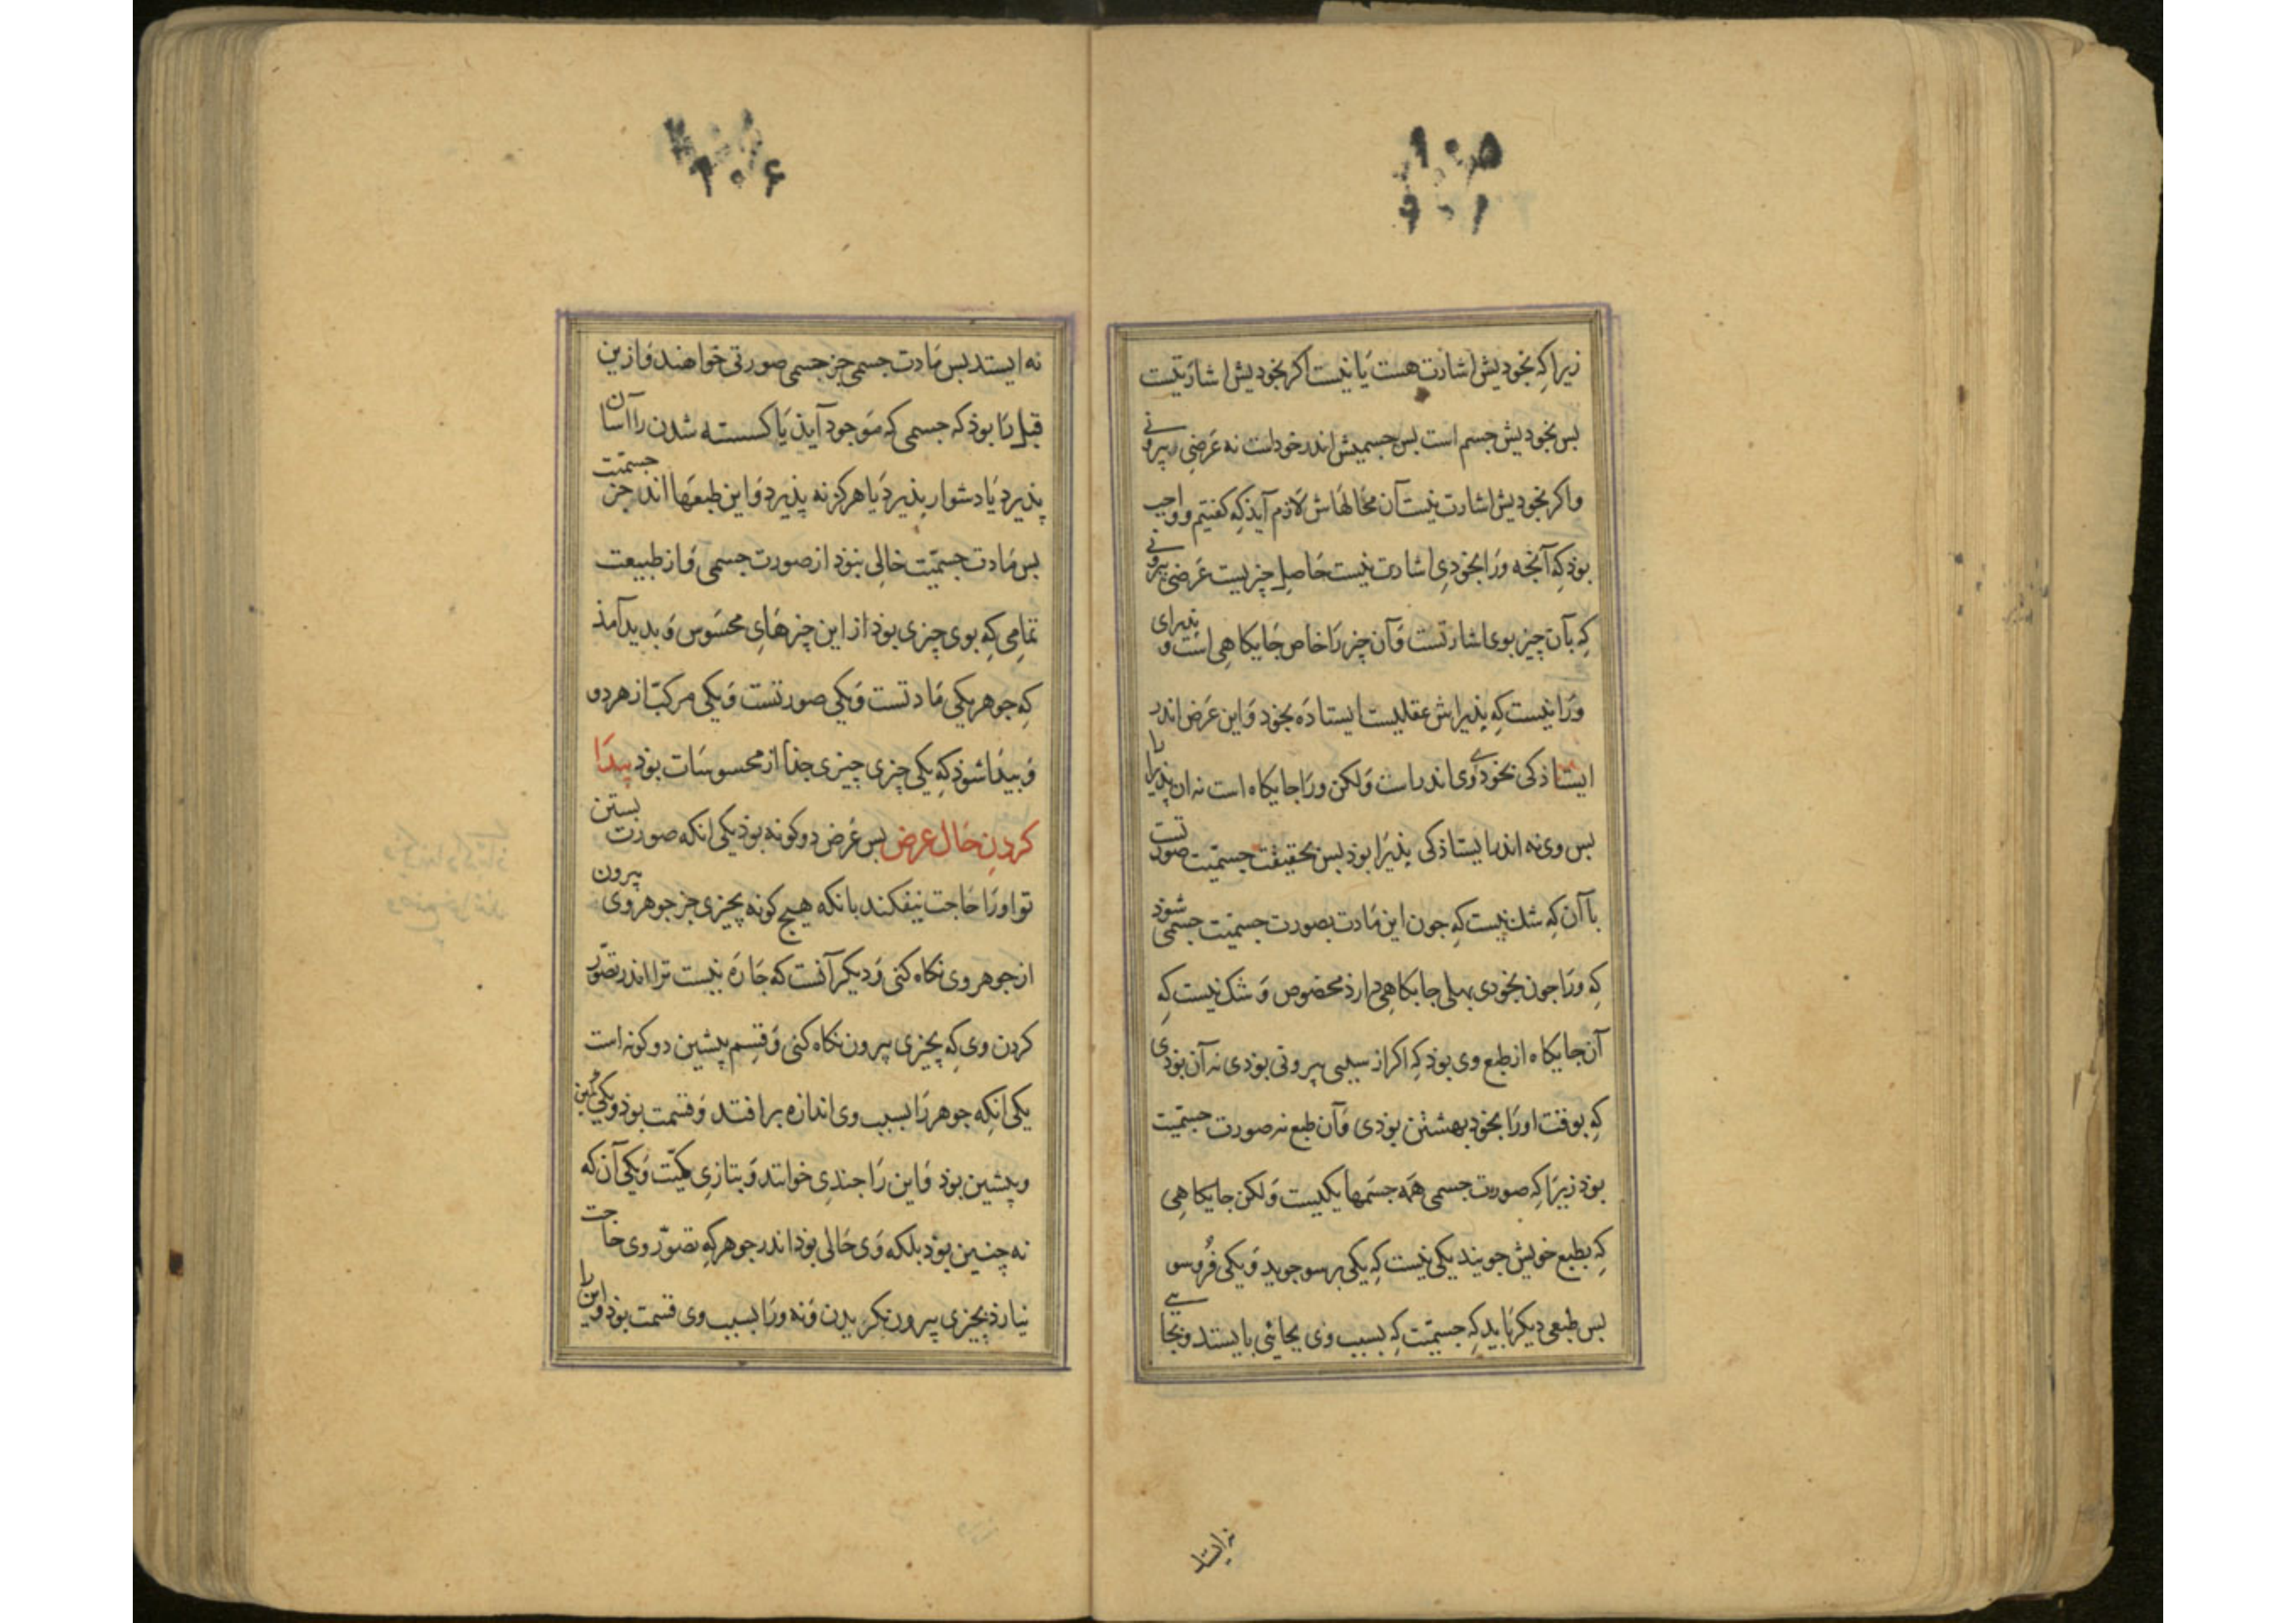 ۱۰۵
زیرا که بخودیش اشارت هست یا نیست اکر بخودیش اشارتیست
بس بخودیش جسم است بس جسمیش اندر خودست نه عرضی بیرونی
واکر بخودیش اشارت نیست آن محالهاش لازم آید که کفتیم و واجب
بوذ که آنجه ورا بخودی اشارت نیست حاصل چزیست عرضی بیرونی
که بآن چیز بوی اشارتست وآن چز را خاص جایکاهی است و پذیرای
ورا نیست که پذیراش عقلیست ایستاده بخود واین عرض اندر
ایستاذکی بخودی وی اندراست ولکن ورا جایکاه است نه ان پذیرا را
بس وی نه اندر ایستاذکی پذیرا بوذ بس بحقیقت جسمیّت صورتست
با آن که شک نیست که جون این مادت بصورت جسمیّت جسمی شود
که ورا جون بخودی بهلی جایکاهی دارذ مخصوص و شک نیست که
آن جایکاه از طبع وی بوذ که اکر از سببی بیرونی بوذی نه آن بوذی
که بوقت اورا بخود بهشتن بوذی وآن طبع نه صورت جسمیّت
بوذ زیرا که صورت جسمی همه جسمها یکیست ولکن جایکاهی
که بطبع خویش جویند یکی نیست که یکی بر سو جوید ویکی فُروسو
بس طبعی دیکر باید که جسمیّت که بسبب وی بجائی بایستد وبجایی
نه ایستد
۱۰۶
نه ایستد بس مادت جسمی جز جسمی صورتی خواهند وازین
قبل را بوذ که جسمی که موجود آیذ یا کسسته شدن را آسان
پذیرد یا دشوار پذیرد یا هرکز نه پذیرد واین طبعها اند جز جسمیّت
بس مادت جسمیّت خالی نبوذ از صورت جسمی واز طبیعت
تمامی که بوی چزی بوذ از این چزهای محسوس و بدید آمذ
که جوهر یکی مادتست ویکی صورتست ویکی مرکّب از هر دو
و بیذا شوذ که یکی چزی چیزی جذا از محسوسات بوذ پیدا
کردن حال عرض بس عرض دو کونه بوذ یکی انکه صورت بستن
تو اورا حاجت نیفکند بانکه هیچ کونه بچیزی جز جوهر وی بیرون
از جوهر وی نکاه کنی ودیکر آنست که جاره نیست ترا اندر تصوّر
کردن وی که بچیزی بیرون نکاه کنی وقسم پیشین دو کونه است
یکی انکه جوهر را بسبب وی اندازه بر افتد وقسمت بوذ و
وپیشین بوذ واین را جندی خوانند وبتازی کمیّت ویکی آن که
نه چنین بوذ بلکه وی حالی بوذ اندر جوهر که تصوّر وی حاجت
نیارذ بچیزی بیرون نکریدن ونه ورا بسبب وی قسمت بوذ واین را